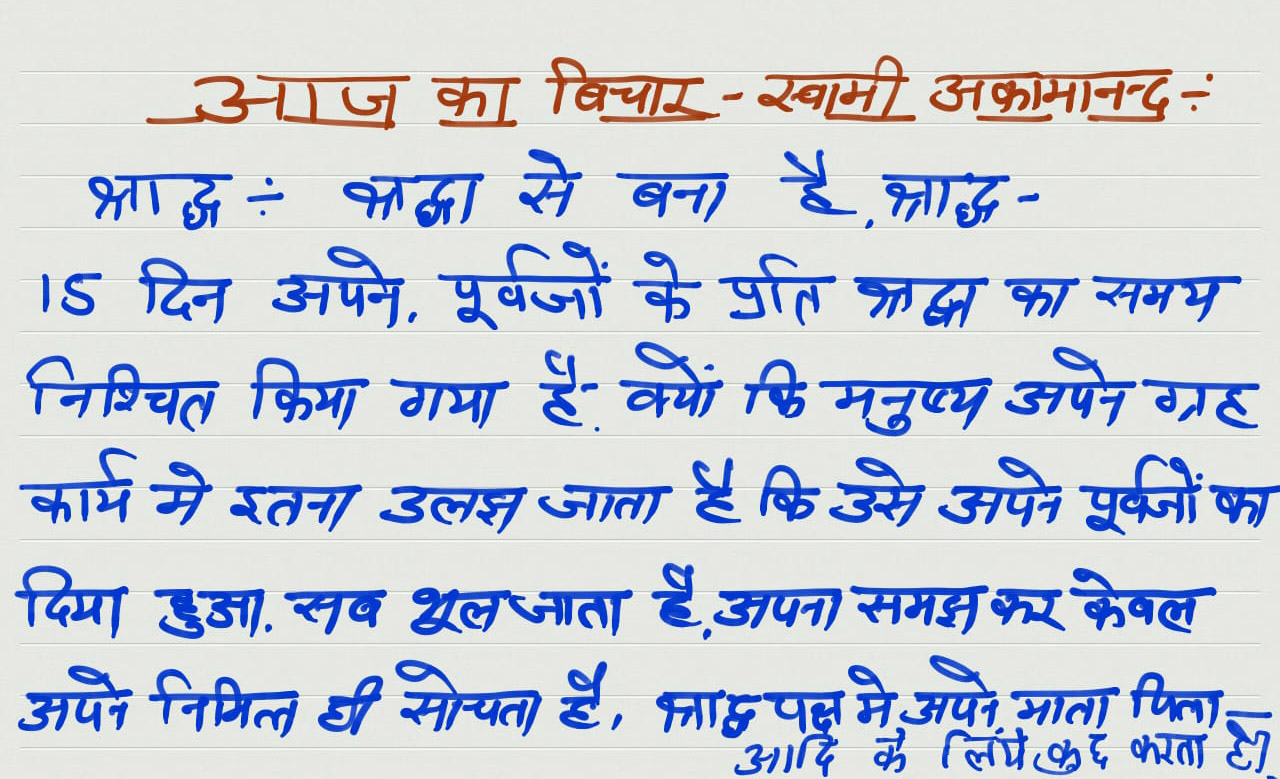 आज का बिचार - स्वामी अकामानन्द ÷
श्राद्ध ÷ श्रद्धा से बना है, श्राद्ध -
15 दिन अपने, पूर्वजों के प्रति श्रद्धा का समय
निश्चित किया गया है. क्यों कि मनुष्य अपने ग्रह
कार्य मे इतना उलझ जाता है कि उसे अपने पूर्वजों का
दिया हुआ. सब भूल जाता है, अपना समझ कर केवल
अपने निमित ही सोचता है, श्राद्ध पक्ष मे अपने माता पिता -
आदि के लिये कुछ करता है।